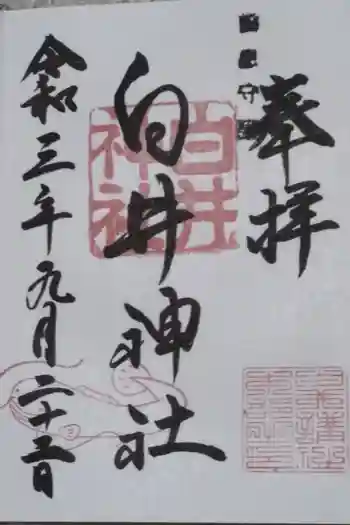 奉拝
白井神社
白井神社
令和三年九月二十五日